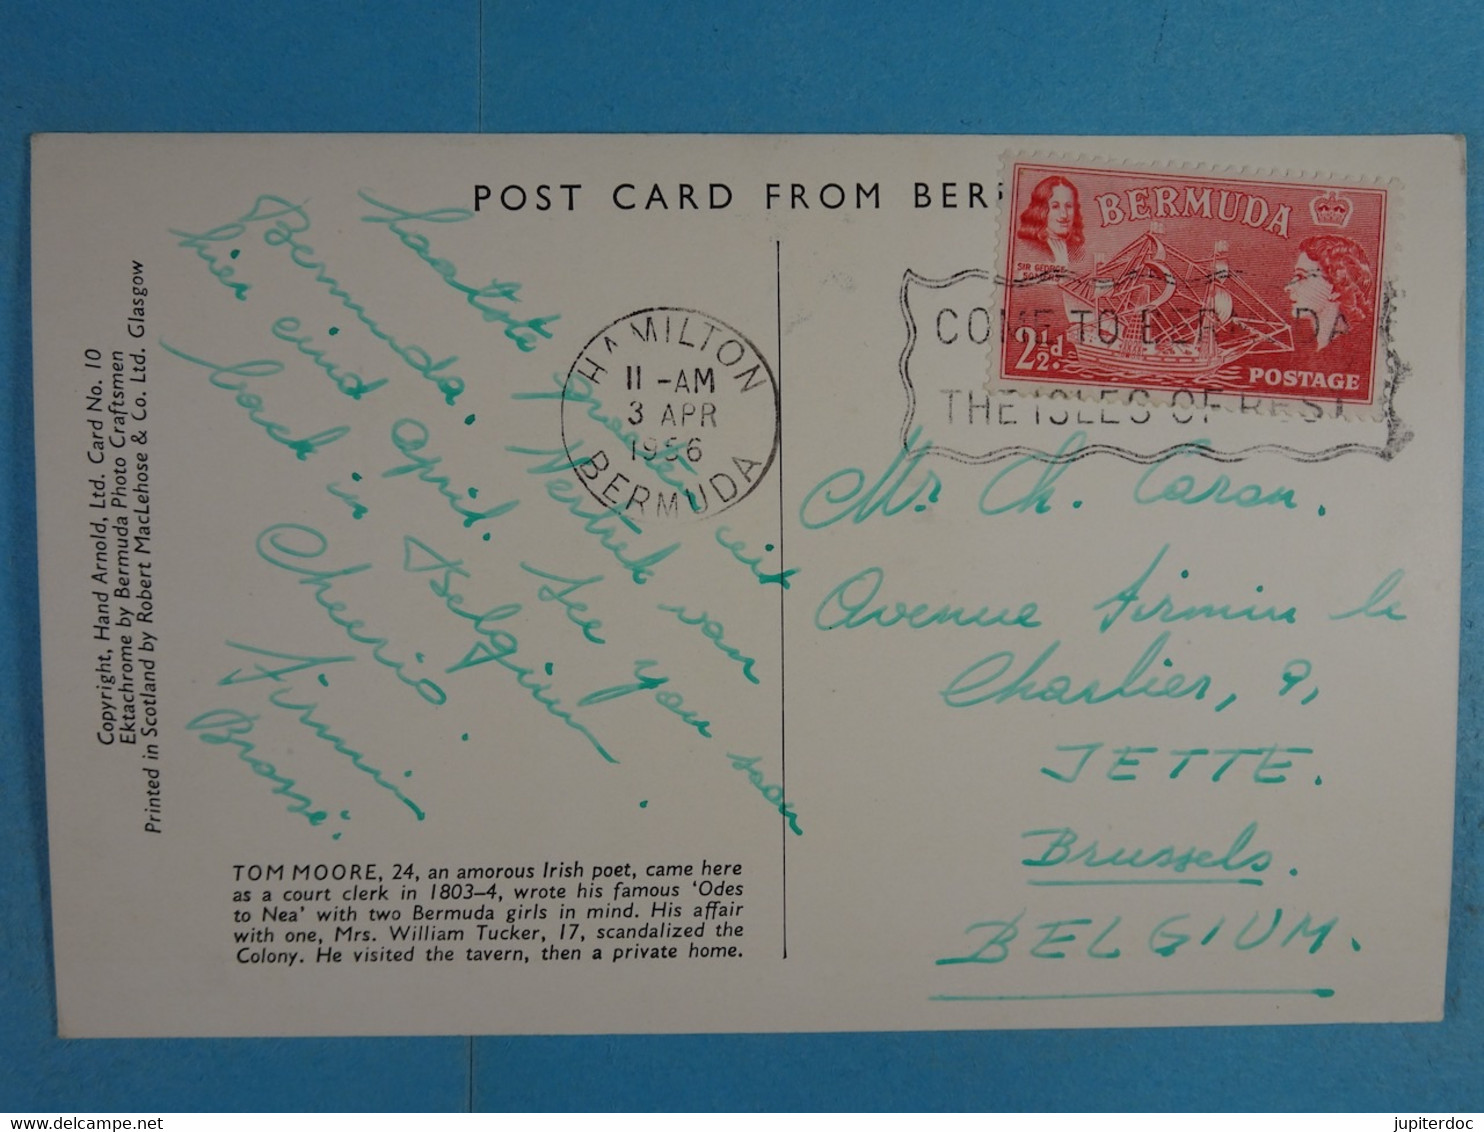 POST CARD FROM BER
Laatste groeten uit
Bermuda. Vertrek van
hier eind april. See you soon
back in Belgium.
Cheerio.
Firmin
Brossé.
HAMILTON
11 -AM
3 APR
1956
BERMUDA
BERMUDA
SIR GEORGE
2½d.
POSTAGE
COME TO BERMUDA
THE ISLES OF REST
Mr. Ch. Caron.
Avenue Firmin le
Charlier, 9,
JETTE.
Brussels.
BELGIUM.
Copyright, Hand Arnold, Ltd. Card No. 10
Ektachrome by Bermuda Photo Craftsmen
Printed in Scotland by Robert MacLehose & Co. Ltd. Glasgow
TOM MOORE, 24, an amorous Irish poet, came here
as a court clerk in 1803–4, wrote his famous ‘Odes
to Nea’ with two Bermuda girls in mind. His affair
with one, Mrs. William Tucker, 17, scandalized the
Colony. He visited the tavern, then a private home.
delcampe.net
jupiterdoc